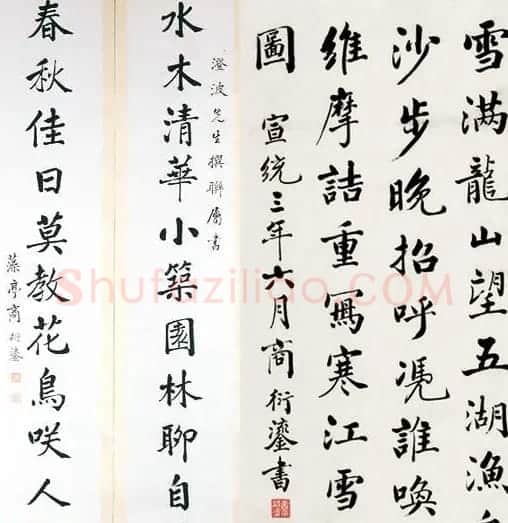 雪滿龍山望五湖漁
沙步晚招呼凴誰喚
維摩詰重寫寒江雪
圖 宣統三年六月商衍鎏書
澄波先生撰聯屬書
水木清華小築園林聊自
春秋佳日莫教花鳥咲人
藻亭商衍鎏
Shufaziliao.COM